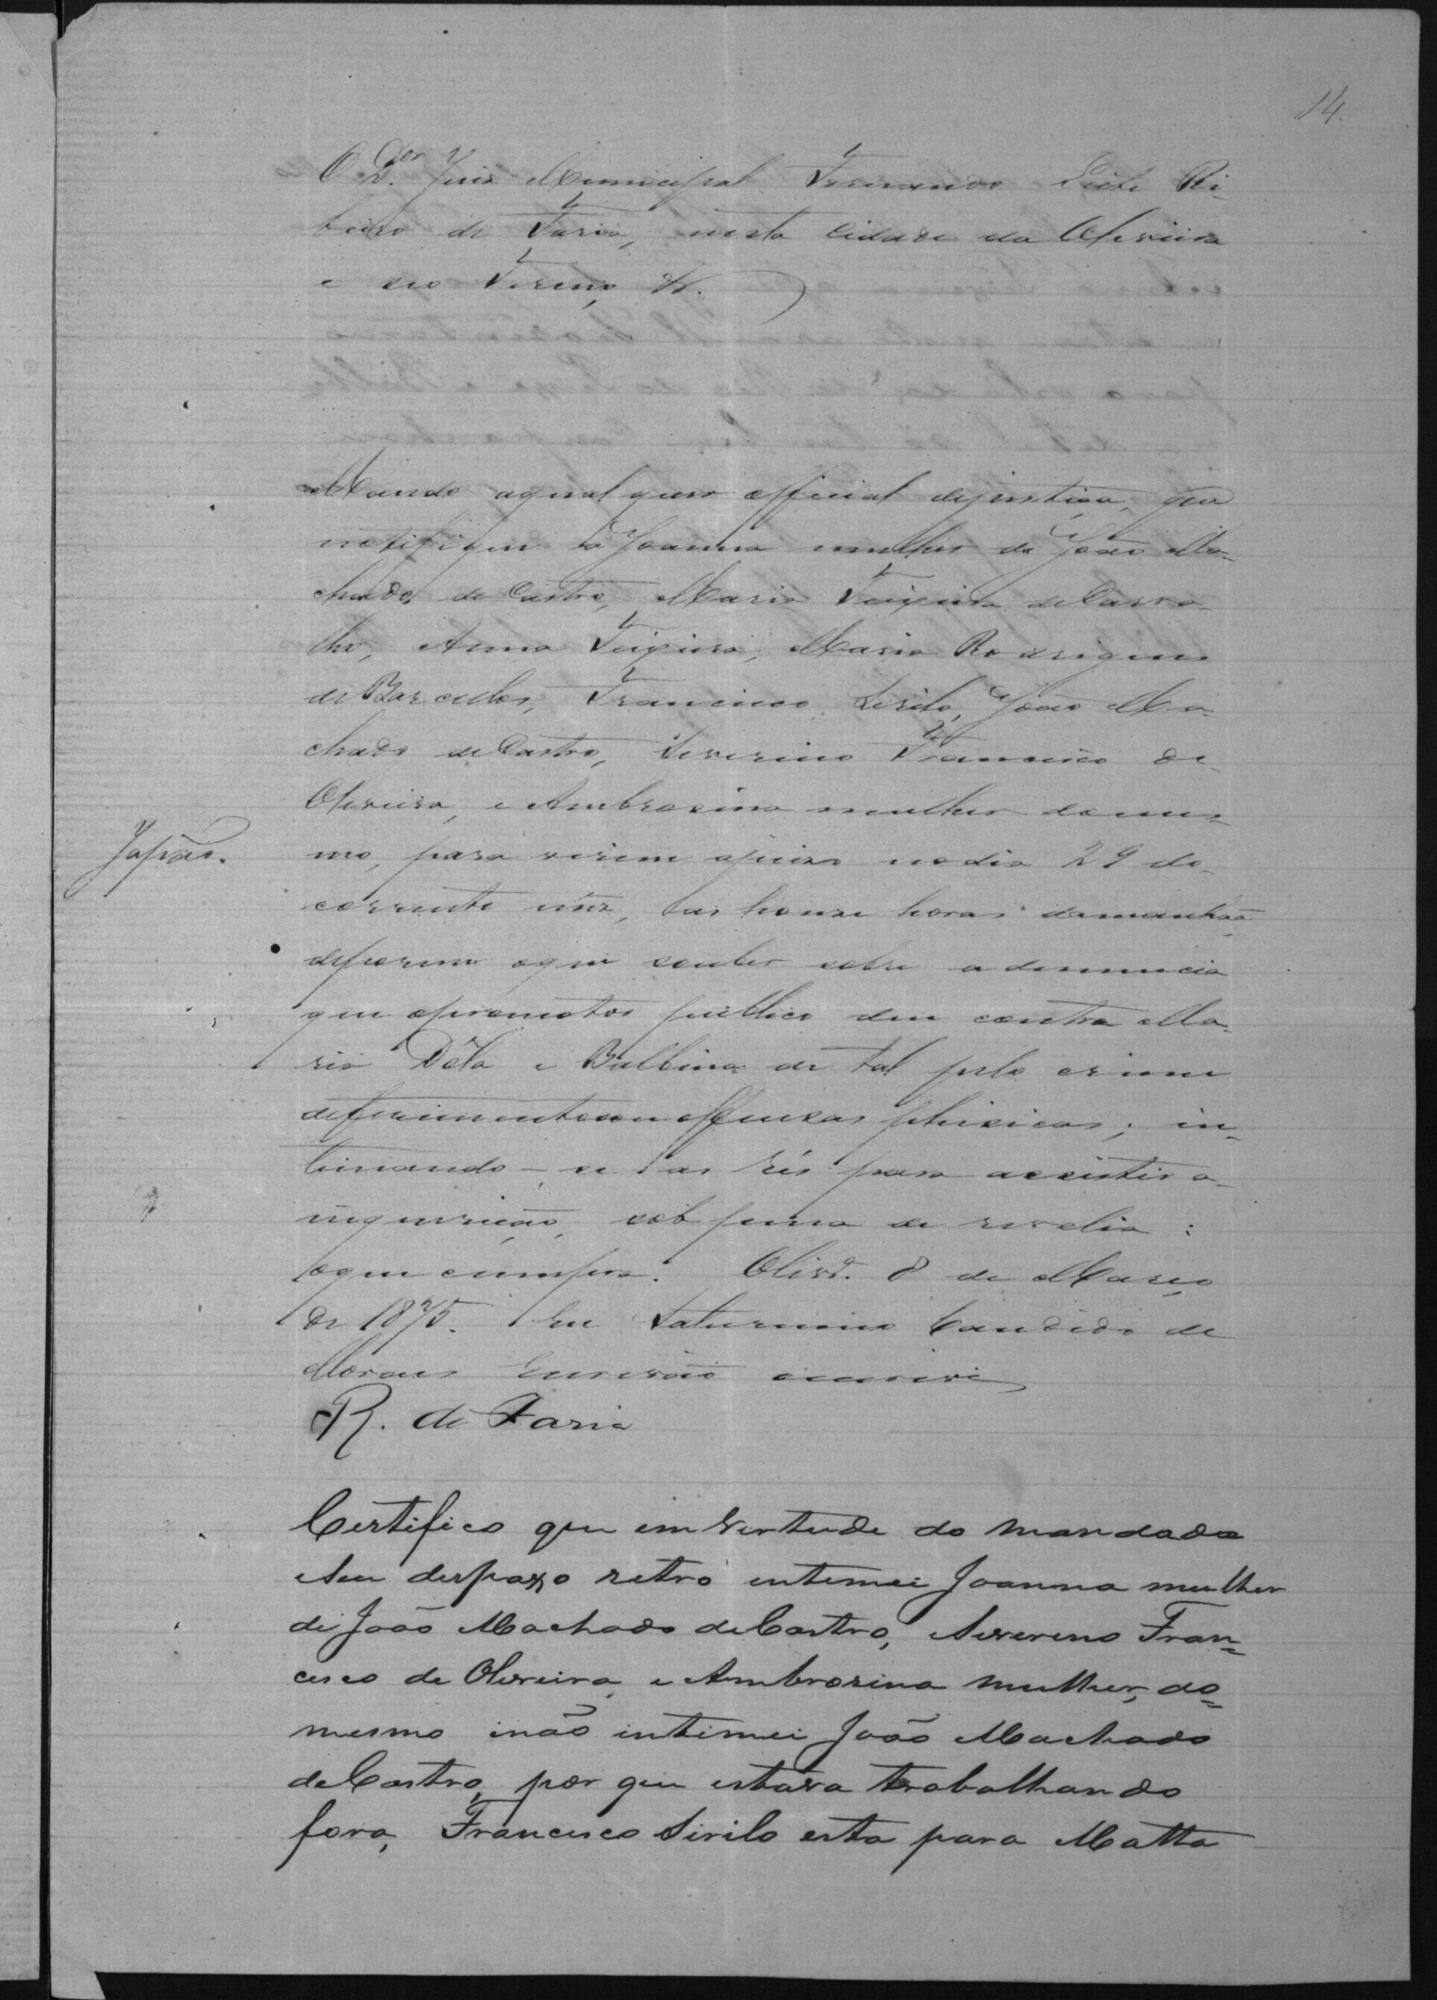 14.
O Dor. Juiz Municipal Fernando Leite Ri-
beiro de Faria, nesta Cidade da Oliveira
e seo Termo, &.
Mando aqualquer official dejustiça, que
notifique a Joanna mulher de João Ma-
chado de Castro, Maria Teixeira de Carva-
lho, Anna Teixeira, Maria Rodrigues
de Barcellos, Francisco Sirilo, João Ma-
chado de Castro, Severino Francisco de
Oliveira, e Ambrosina mulher domes-
mo, para virem ajuizo nodia 29 do
Japão.
corrente mez, as honze horas damanhãa
deporem oque souber sobre a denuncia
que opromotor publico deu contra Ma-
ria Dóta e Balbina de tal pelo crime
deferimentos ou offensas phisicas; in-
timando-se as rés para assistir a
inquirição, sob pena de revelia:
oque cumpra. Olivra. 8 de Março
de 1875. Eu Saturnino Candido de
Moraes Escrivão escrevi
R. de Faria
Certifico que em vertude do mandado
eseu despaxo retro entemei Joanna mulher
de João Machado de Castro, Severeno Fran=
cesco de Oliveira e Ambrosina mulher, do=
mesmo inão intimei João Machado
de Castro, por que estava trabalhando
fora, Francesco Sirilo esta para Matta